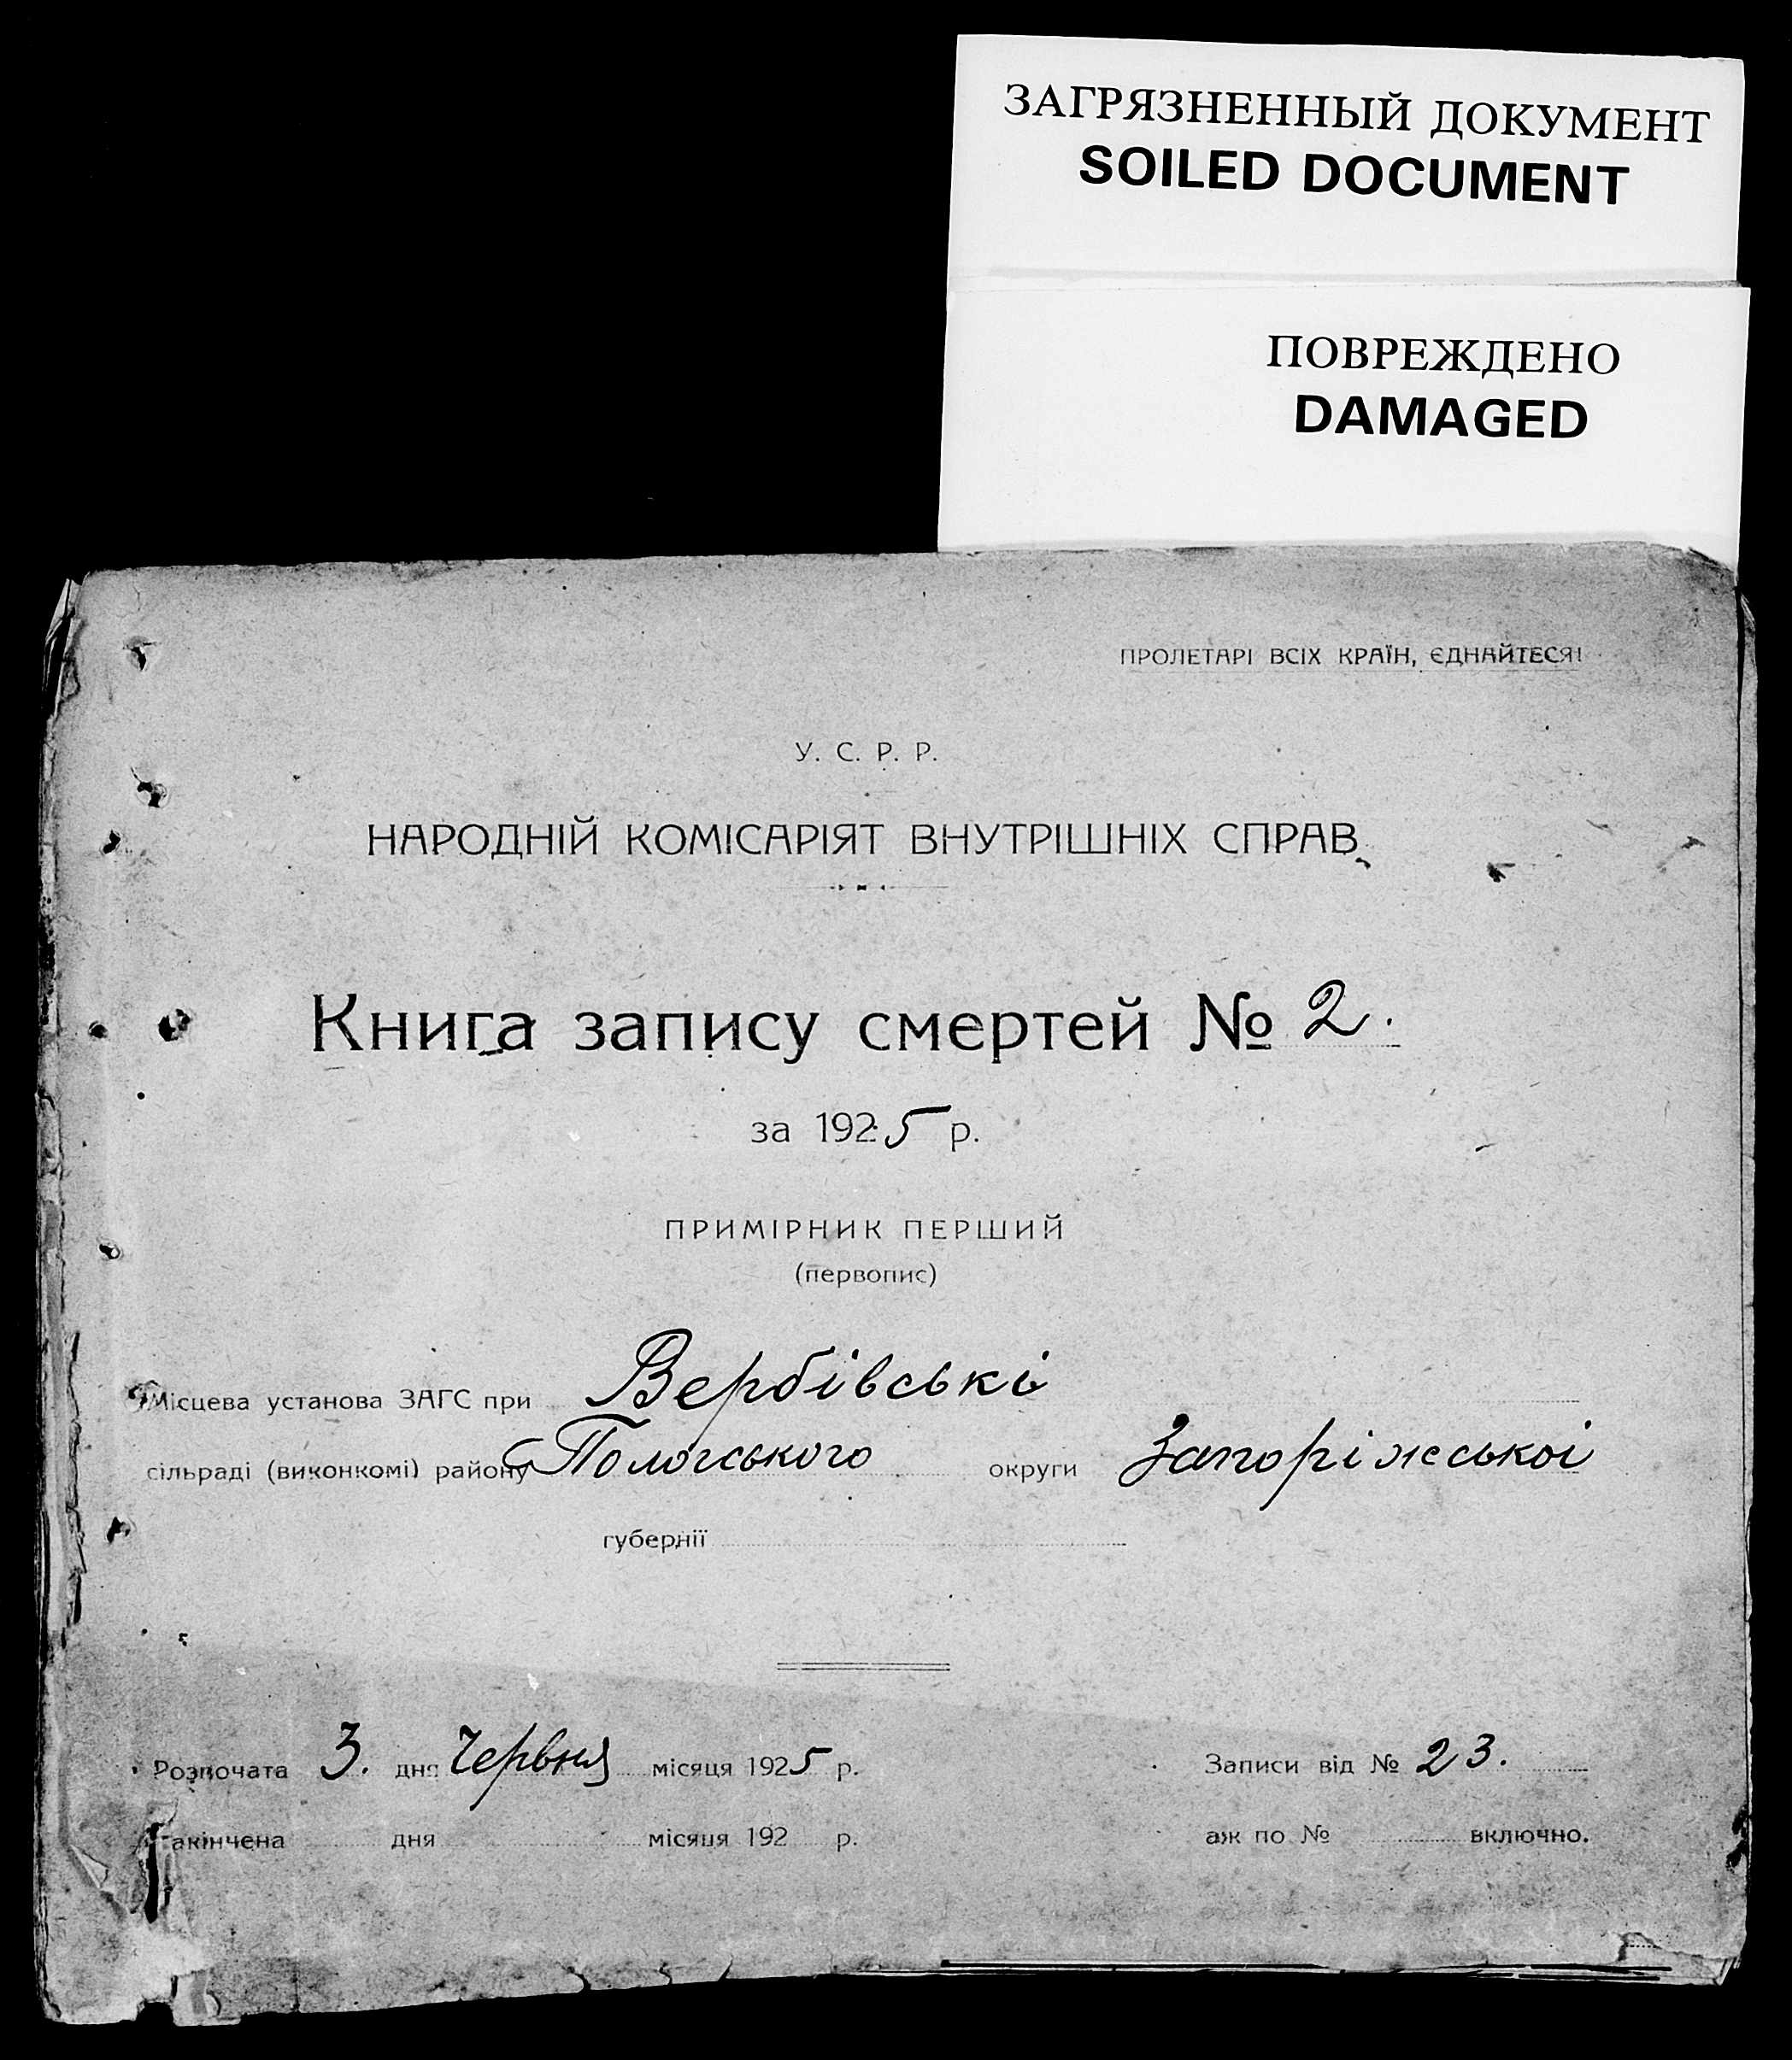 ЗАГРЯЗНЕННЫЙ ДОКУМЕНТ
SOILED DOCUMENT
ПОВРЕЖДЕНО
DAMAGED
ПРОЛЕТАРІ ВСІХ КРАЇН, ЄДНАЙТЕСЯ!
У. С. Р. Р.
НАРОДНІЙ КОМІСАРІЯТ ВНУТРІШНІХ СПРАВ
Книга запису смертей № 2.
за 1925 р.
ПРИМІРНИК ПЕРШИЙ
(первопис)
Місцева установа ЗАГС при Вербівські
сільраді (виконкомі) району Пологського округи Запоріжської
губернії
Розпочата 3. дня Червня місяця 1925 р. Записи від № 23.
акінчена дня місяця 192 р. аж по № включно.